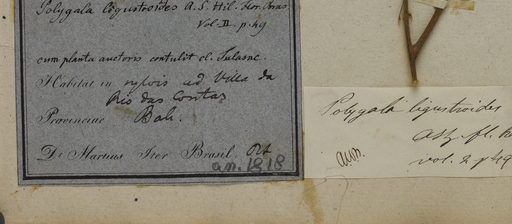 Polygala ligustroides A. S. Hil. flor. bras
Vol. II. p. 49
cum planta auctoris contulit cl. Tulasne
Habitat in sylvis ad Villa da
Rio das Contas
Provinciae Bah.
De Martius Iter Brasil.
an. 1818
Polygala ligustroides
ASH. fl. b
vol. 2 p 49